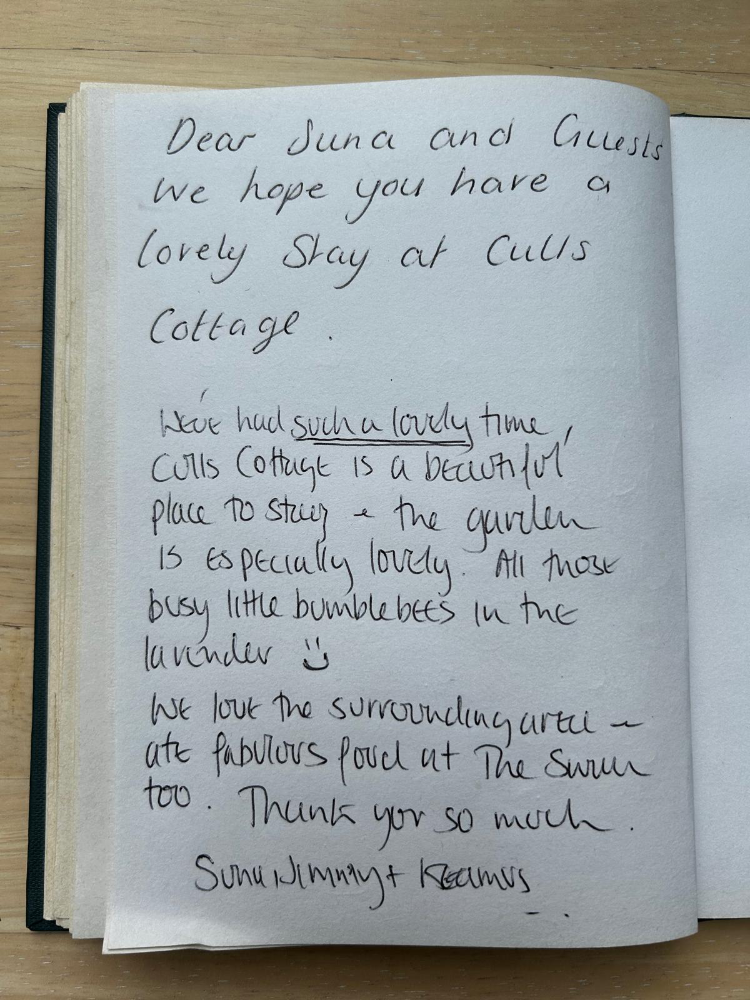 Dear Suna and Guests
We hope you have a
lovely Stay at Culls
Cottage.
We've had such a lovely time,
Culls Cottage is a beautiful
place to stay + the garden
is especially lovely. All those
busy little bumblebees in the
lavender :)
We love the surrounding area –
ate fabulous food at The Swan
too. Thank you so much.
Suna, Jimmy +